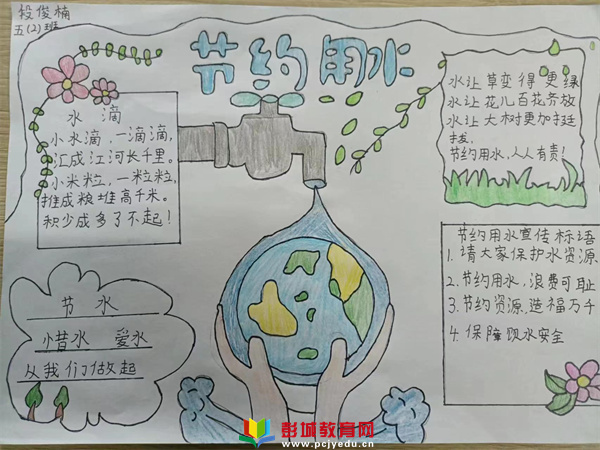 段俊楠
五(2)班
节约用水
水滴
小水滴,一滴滴,
汇成江河长千里。
小米粒,一粒粒,
堆成粮堆高千米。
积少成多了不起!
水让草变得更绿
水让花儿百花齐放
水让大树更加挺
拔,
节约用水,人人有责!
节水
惜水 爱水
从我们做起
节约用水宣传标语
1.请大家保护水资源
2.节约用水,浪费可耻
3.节约资源,造福万千
4.保障饮水安全
彭城教育网
www.pcjyedu.cn